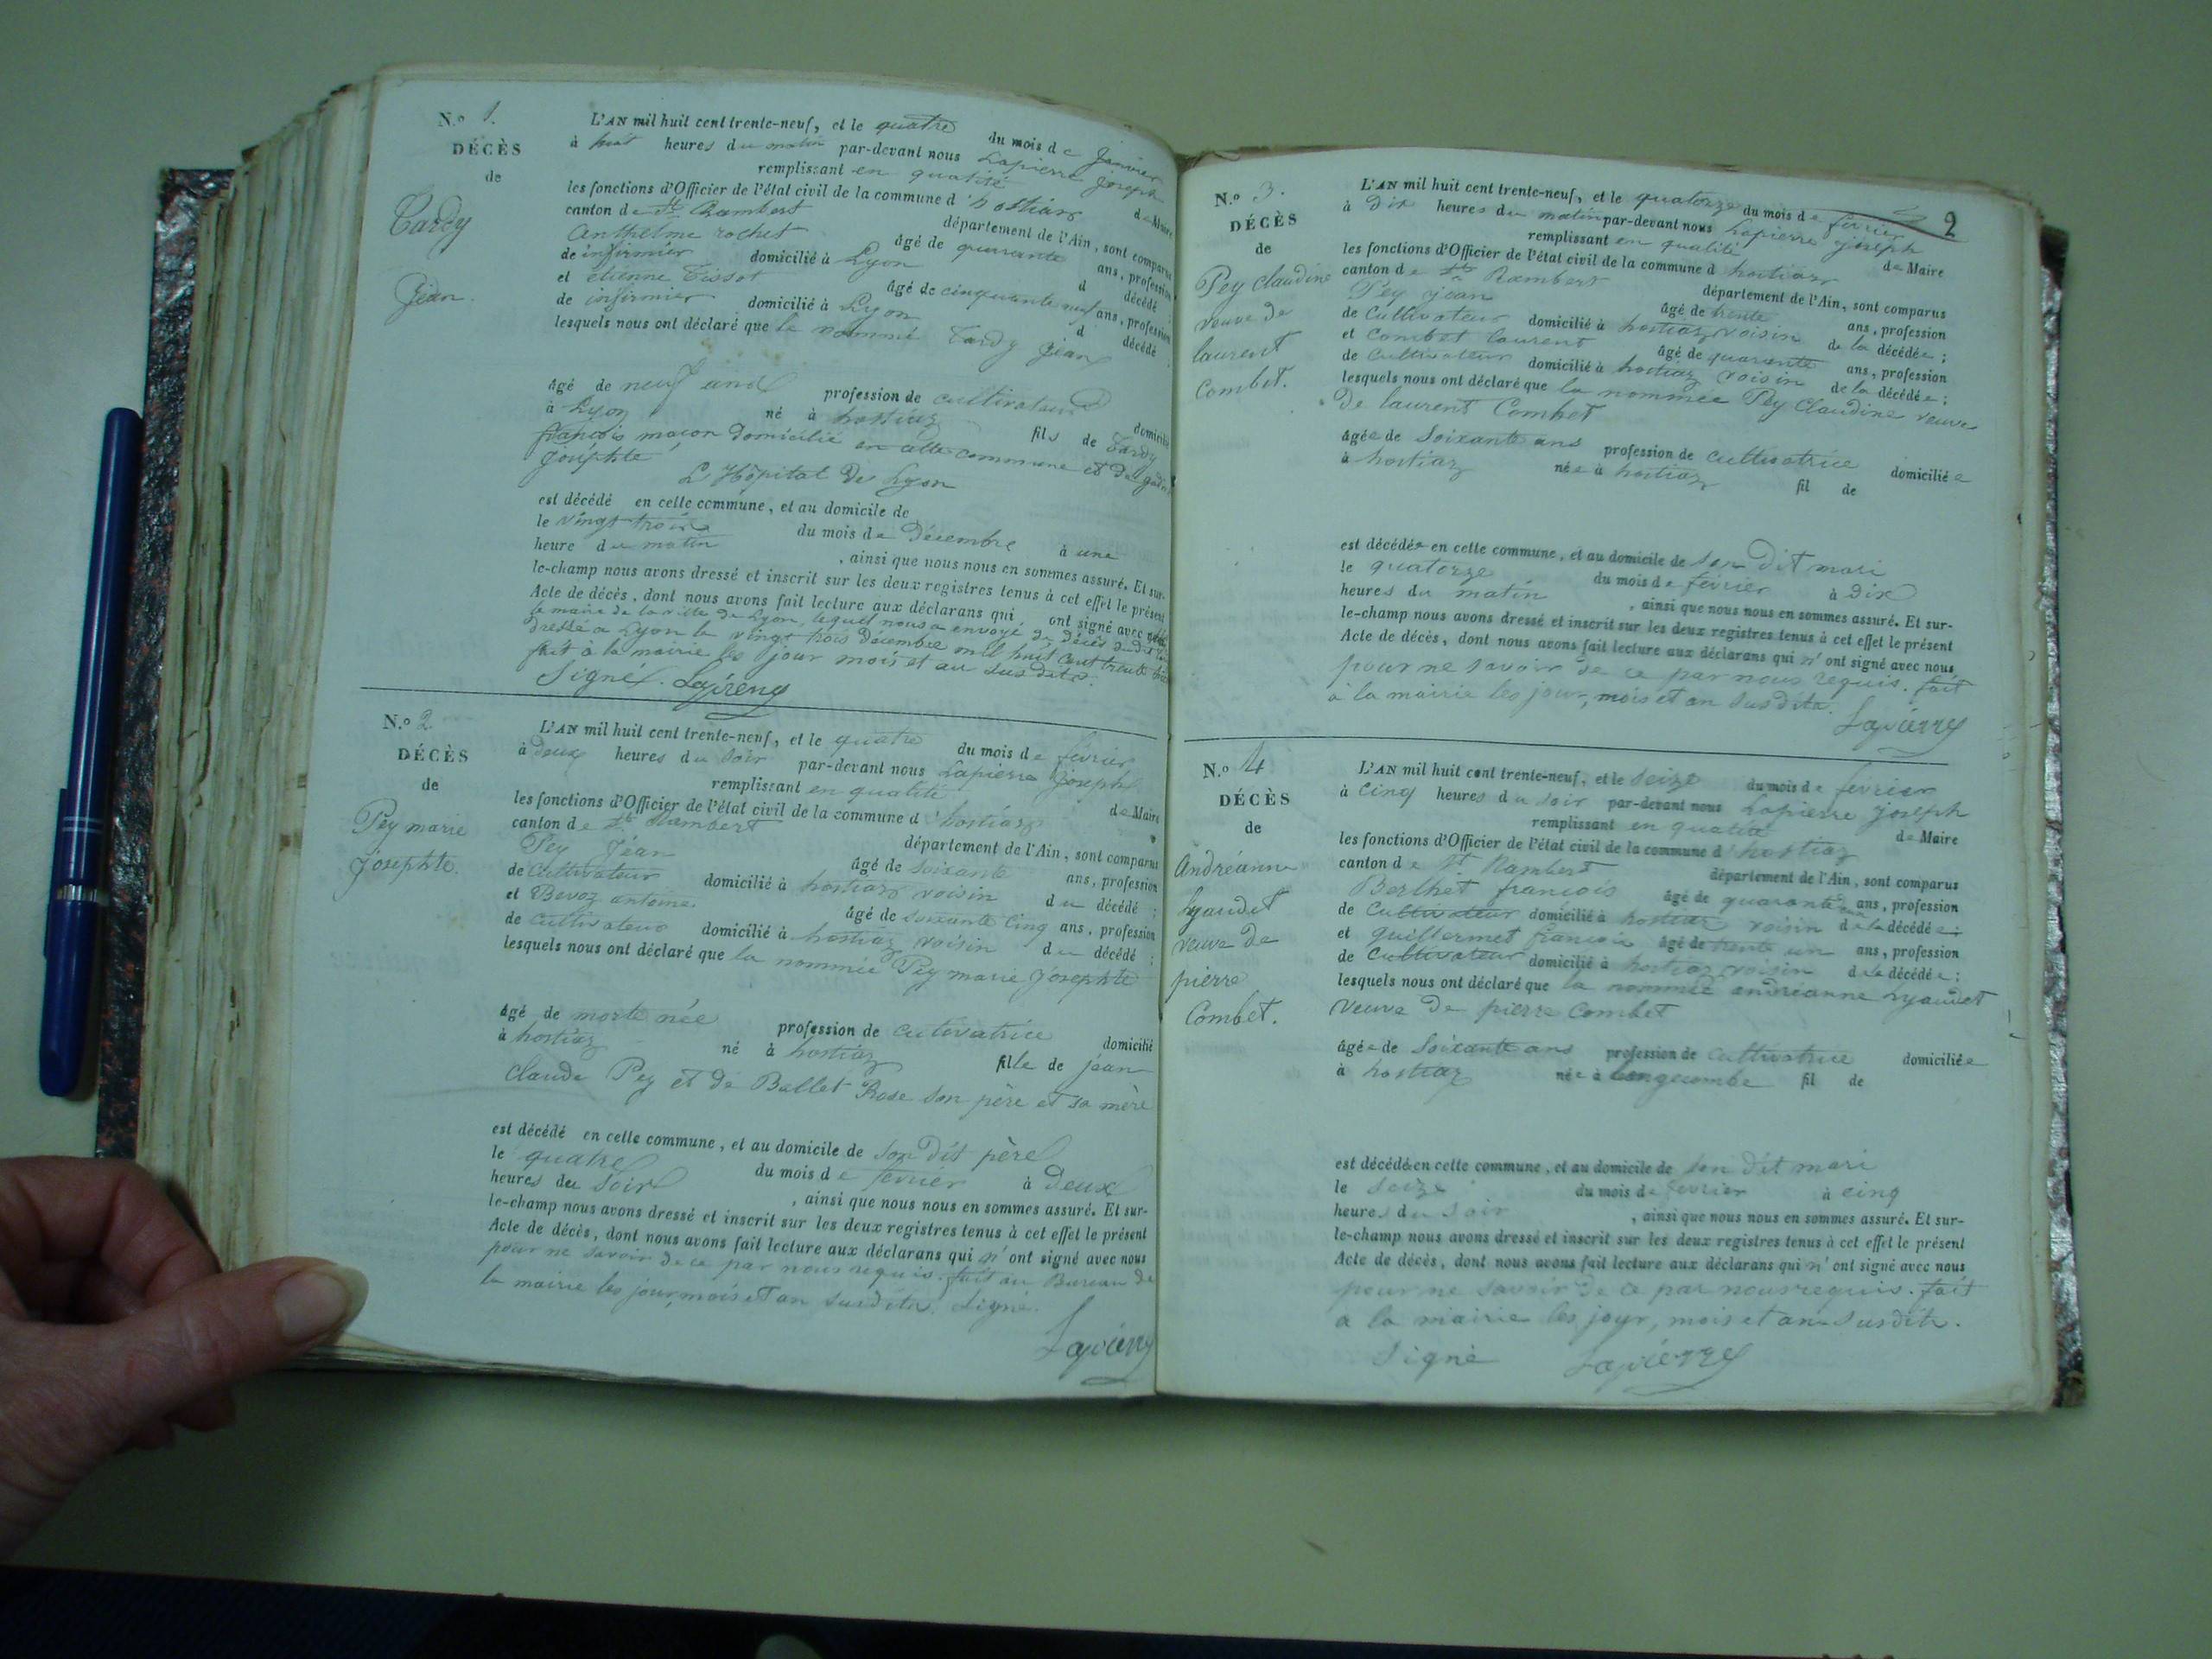 N.o 1.
DÉCÈS
de
Tardy
Jean.
L'AN mil huit cent trente-neuf, et le quatre du mois de Janvier
à huit heures du matin par-devant nous Lapierre Joseph
remplissant en qualité de Maire
les fonctions d'Officier de l'état civil de la commune d hostiaz
canton de St Rambert département de l'Ain, sont comparus
Anthelme rochet âgé de quarante ans, profession
de infirmier domicilié à Lyon d décédé ;
et étienne Tissot âgé de cinquante neuf ans, profession
de infirmier domicilié à Lyon d décédé
lesquels nous ont déclaré que le nommé Tardy Jean
âgé de neuf ans profession de cultivateur domicilié
à Lyon né à hostiaz fils de Tardy
françois maçon domicilié en cette commune et de
joséphte
L'Hôpital de Lyon
est décédé en celle commune, et au domicile de
le vingt trois du mois de Décembre à une
heure du matin , ainsi que nous nous en sommes assuré. Et sur-
le-champ nous avons dressé et inscrit sur les deux registres tenus à cet effet le présent
Acte de décès, dont nous avons fait lecture aux déclarans qui ont signé avec
le maire de la ville de Lyon, lequel nous a envoyé du décès
dressé a Lyon le vingt trois décembre mil huit cent trente
fait à la mairie les jour mois et an susdits.
Signé. Lapierre
N.o 2
DÉCÈS
de
Pey marie
Josephte.
L'AN mil huit cent trente-neuf, et le quatre du mois de février
à deux heures du soir par-devant nous Lapierre Joseph
remplissant en qualité de Maire
les fonctions d'Officier de l'état civil de la commune d hostiaz
canton de St Rambert département de l'Ain, sont comparus
Pey Jéan âgé de soixante ans, profession
de Cultivateur domicilié à hostiaz voisin du décédé ;
et Bevoz antoine âgé de soixante cinq ans, profession
de cultivateur domicilié à hostiaz voisin du décédé ;
lesquels nous ont déclaré que la nommée Pey marie Josephte
âgé de morte née profession de cultivatrice domicilié
à hostiaz né à hostiaz fille de jéan
claude Pey et de Ballet Rose son père et sa mère
est décédé en celle commune, et au domicile de son dit père
le quatre du mois de février à deux
heures du soir , ainsi que nous nous en sommes assuré. Et sur-
le-champ nous avons dressé et inscrit sur les deux registres tenus à cet effet le présent
Acte de décès, dont nous avons fait lecture aux déclarans qui n' ont signé avec nous
pour ne savoir de ce par nous requis. fait au Bureau de
la mairie les jour, mois et an susdits. Signé.
Lapierre
2
N.o 3.
DÉCÈS
de
Pey Claudine
veuve de
laurent
Combet.
L'AN mil huit cent trente-neuf, et le quatorze du mois de février
à Dix heures du matin par-devant nous Lapierre Joseph
remplissant en qualité de Maire
les fonctions d'Officier de l'état civil de la commune d hostiaz
canton de St Rambert département de l'Ain, sont comparus
Pey jéan âgé de trente ans, profession
de Cultivateur domicilié à hostiaz voisin de la décédée ;
et Combet laurent âgé de quarante ans, profession
de Cultivateur domicilié à hostiaz voisin de la décédée ;
lesquels nous ont déclaré que la nommée Pey Claudine veuve
De laurent Combet
âgée de Soixante ans profession de cultivatrice domiciliée
à hostiaz née à hostiaz fil de
est décédée en cette commune, et au domicile de son Dit mari
le quatorze du mois de février à dix
heures du matin , ainsi que nous nous en sommes assuré. Et sur-
le-champ nous avons dressé et inscrit sur les deux registres tenus à cet effet le présent
Acte de décès, dont nous avons fait lecture aux déclarans qui n' ont signé avec nous
pour ne savoir de ce par nous requis. fait
à la mairie les jour, mois et an susdits.
Lapierre
N.o 4
DÉCÈS
de
Andréanne
hyaudet
veuve de
pierre
Combet.
L'AN mil huit cent trente-neuf, et le seize du mois de février
à Cinq heures du soir par-devant nous Lapierre joseph
remplissant en qualité de Maire
les fonctions d'Officier de l'état civil de la commune d hostiaz
canton de St Rambert département de l'Ain, sont comparus
Berthet françois âgé de quarante ans, profession
de Cultivateur domicilié à hostiaz voisin de la décédée ;
et guillermet françois âgé de trente un ans, profession
de Cultivateur domicilié à hostiaz voisin de la décédée ;
lesquels nous ont déclaré que la nommée andréanne hyaudet
veuve De pierre Combet
âgée de Soixante ans profession de cultivatrice domiciliée
à hostiaz née à longecombe fil de
est décédée en cette commune, et au domicile de son dit mari
le seize du mois de février à cinq
heures du soir , ainsi que nous nous en sommes assuré. Et sur-
le-champ nous avons dressé et inscrit sur les deux registres tenus à cet effet le présent
Acte de décès, dont nous avons fait lecture aux déclarans qui n' ont signé avec nous
pour ne savoir de ce par nous requis. fait
a la mairie les jour, mois et an susdits.
Signé Lapierre